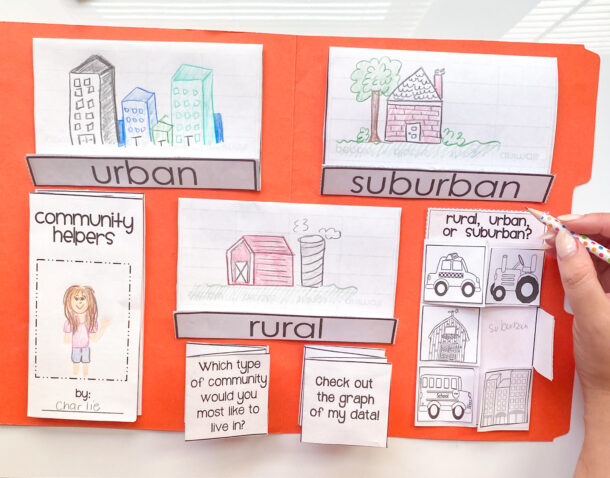 urban
suburban
community
helpers
by:
Charlie
rural
rural, urban,
or suburban?
suburban
School
Which type
of community
would you
most like to
live in?
Check out
the graph
of my data!